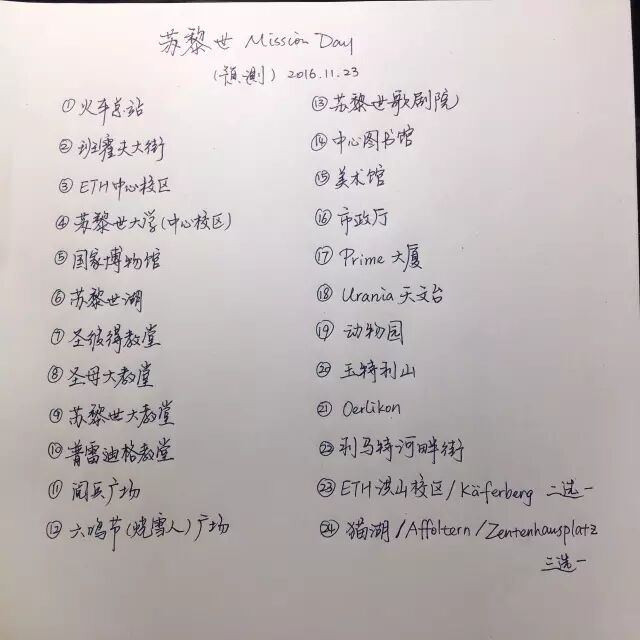 苏黎世 Mission Day
(预测) 2016.11.23
① 火车总站
② 班霍夫大街
③ ETH 中心校区
④ 苏黎世大学(中心校区)
⑤ 国家博物馆
⑥ 苏黎世湖
⑦ 圣彼得教堂
⑧ 圣母大教堂
⑨ 苏黎世大教堂
⑩ 普雷迪格教堂
⑪ 阅兵广场
⑫ 六鸣节(烧雪人)广场
⑬ 苏黎世歌剧院
⑭ 中心图书馆
⑮ 美术馆
⑯ 市政厅
⑰ Prime 大厦
⑱ Urania 天文台
⑲ 动物园
⑳ 玉特利山
㉑ Oerlikon
㉒ 利马特河畔街
㉓ ETH 洪山校区/Käferberg 二选一
㉔ 猫湖/Affoltern/Zentenhausplatz
三选一